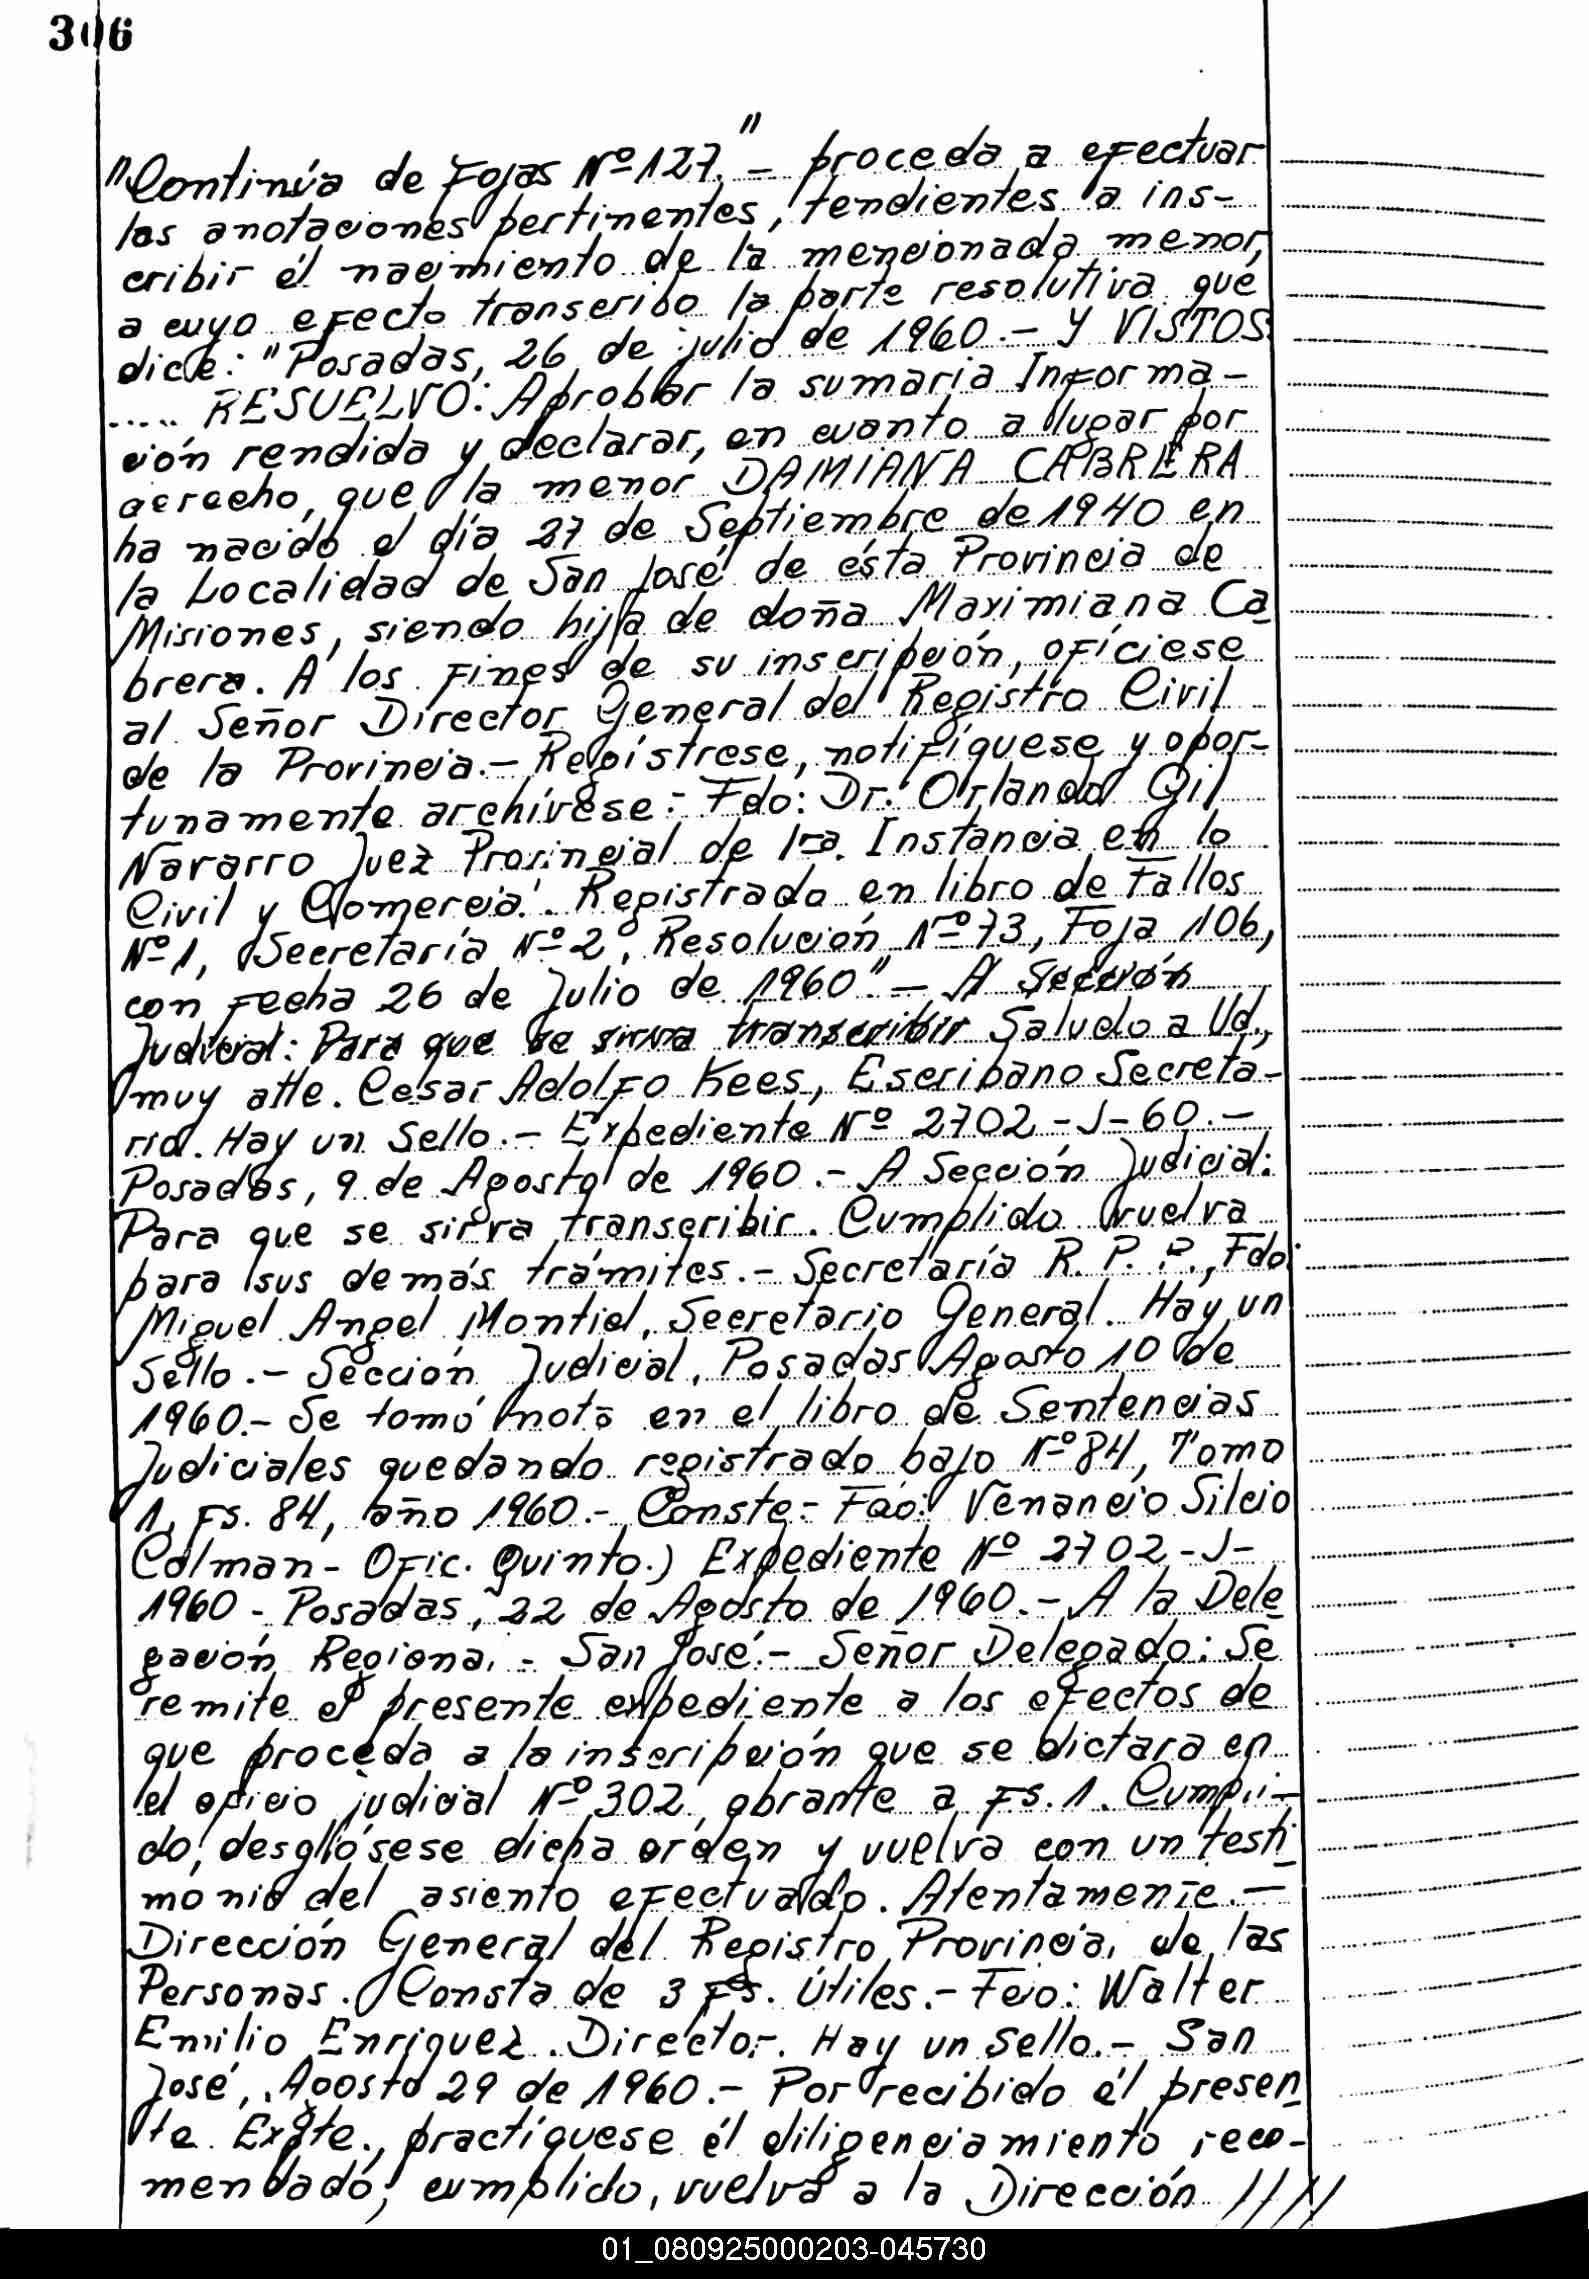 306
"Continúa de Fojas Nº 127."- proceda a efectuar
las anotaciones pertinentes, tendientes a ins-
cribir él nacimiento de la mencionada menor,
a cuyo efecto transcribo la parte resolutiva que
dice: "Posadas, 26 de julio de 1960.- Y VISTOS:
..... RESUELVO: Aprobar la sumaria Informa-
ción rendida y declarar, en cuanto a lugar por
derecho, que la menor DAMIANA CABRERA
ha nacido el día 27 de Septiembre de 1940 en
la Localidad de San José de ésta Provincia de
Misiones, siendo hija de doña Maximiana Ca
brera. A los fines de su inscripción, ofíciese
al Señor Director General del Registro Civil
de la Provincia.- Regístrese, notifíquese y opor-
tunamente archívese.- Fdo: Dr. Orlando Gil
Navarro Juez Provincial de 1ra. Instancia en lo
Civil y Comercial. Registrado en libro de Fallos
Nº 1, Secretaría Nº 2, Resolución Nº 73, Foja 106,
con fecha 26 de Julio de 1960".- A Sección
Judicial: Para que se sirva transcribir Saludo a Ud.,
muy atte. Cesar Adolfo Kees, Escribano Secreta-
rio. Hay un Sello.- Expediente Nº 2702-J-60.-
Posadas, 9 de Agosto de 1960.- A Sección Judicial:
Para que se sirva transcribir. Cumplido vuelva
para sus demás trámites.- Secretaría R. P. P., Fdo:
Miguel Angel Montiel, Secretario General. Hay un
Sello.- Sección Judicial, Posadas Agosto 10 de
1960.- Se tomó nota en el libro de Sentencias
Judiciales quedando registrado bajo Nº 84, Tomo
1, Fs. 84, año 1960.- Conste.- Fdo: Venancio Silcio
Colman- Ofic. Quinto.) Expediente Nº 2702-J-
1960- Posadas, 22 de Agosto de 1960.- A la Dele
gación Regional - San José.- Señor Delegado: Se
remite el presente expediente a los efectos de
que proceda a la inscripción que se dictara en
el oficio judicial Nº 302 obrante a Fs. 1. Cumpli-
do, desglósese dicha orden y vuelva con un testi
monio del asiento efectuado. Atentamente.-
Dirección General del Registro Provincial de las
Personas. Consta de 3 Fs. Útiles.- Fdo: Walter
Emilio Enriquez. Director. Hay un sello.- San
José, Agosto 29 de 1960.- Por recibido él presen
te Expte., practíquese él diligenciamiento reco-
mendado, cumplido, vuelva a la Dirección ////
01_080925000203-045730